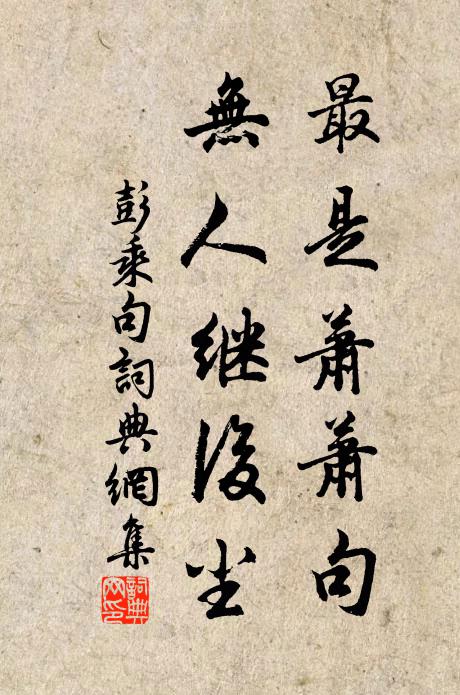 最是蕭蕭句
無人继後尘
彭乘句詞典網集
詞典网印